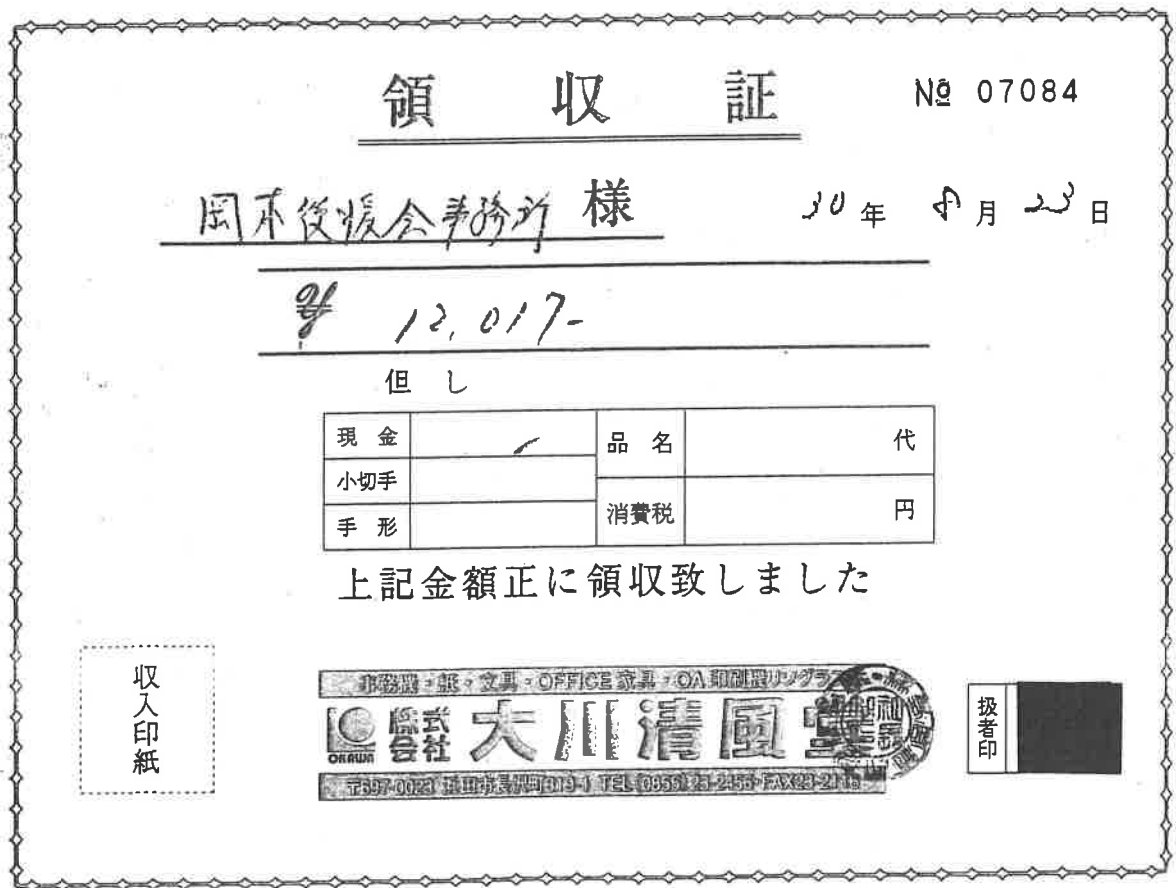 領収証
№ 07084
岡本後援会事務所 様
30年 8月 23日
¥ 12,017-
但し
現金
品名 代
小切手
消費税 円
手形
上記金額正に領収致しました
収入印紙
事務機・紙・文具・OFFICE家具・OA印刷機リソグラフ
OKAWA 株式会社 大川清風堂
〒697-0023 浜田市長沢町 TEL(0855)23-2456・FAX23-
扱者印